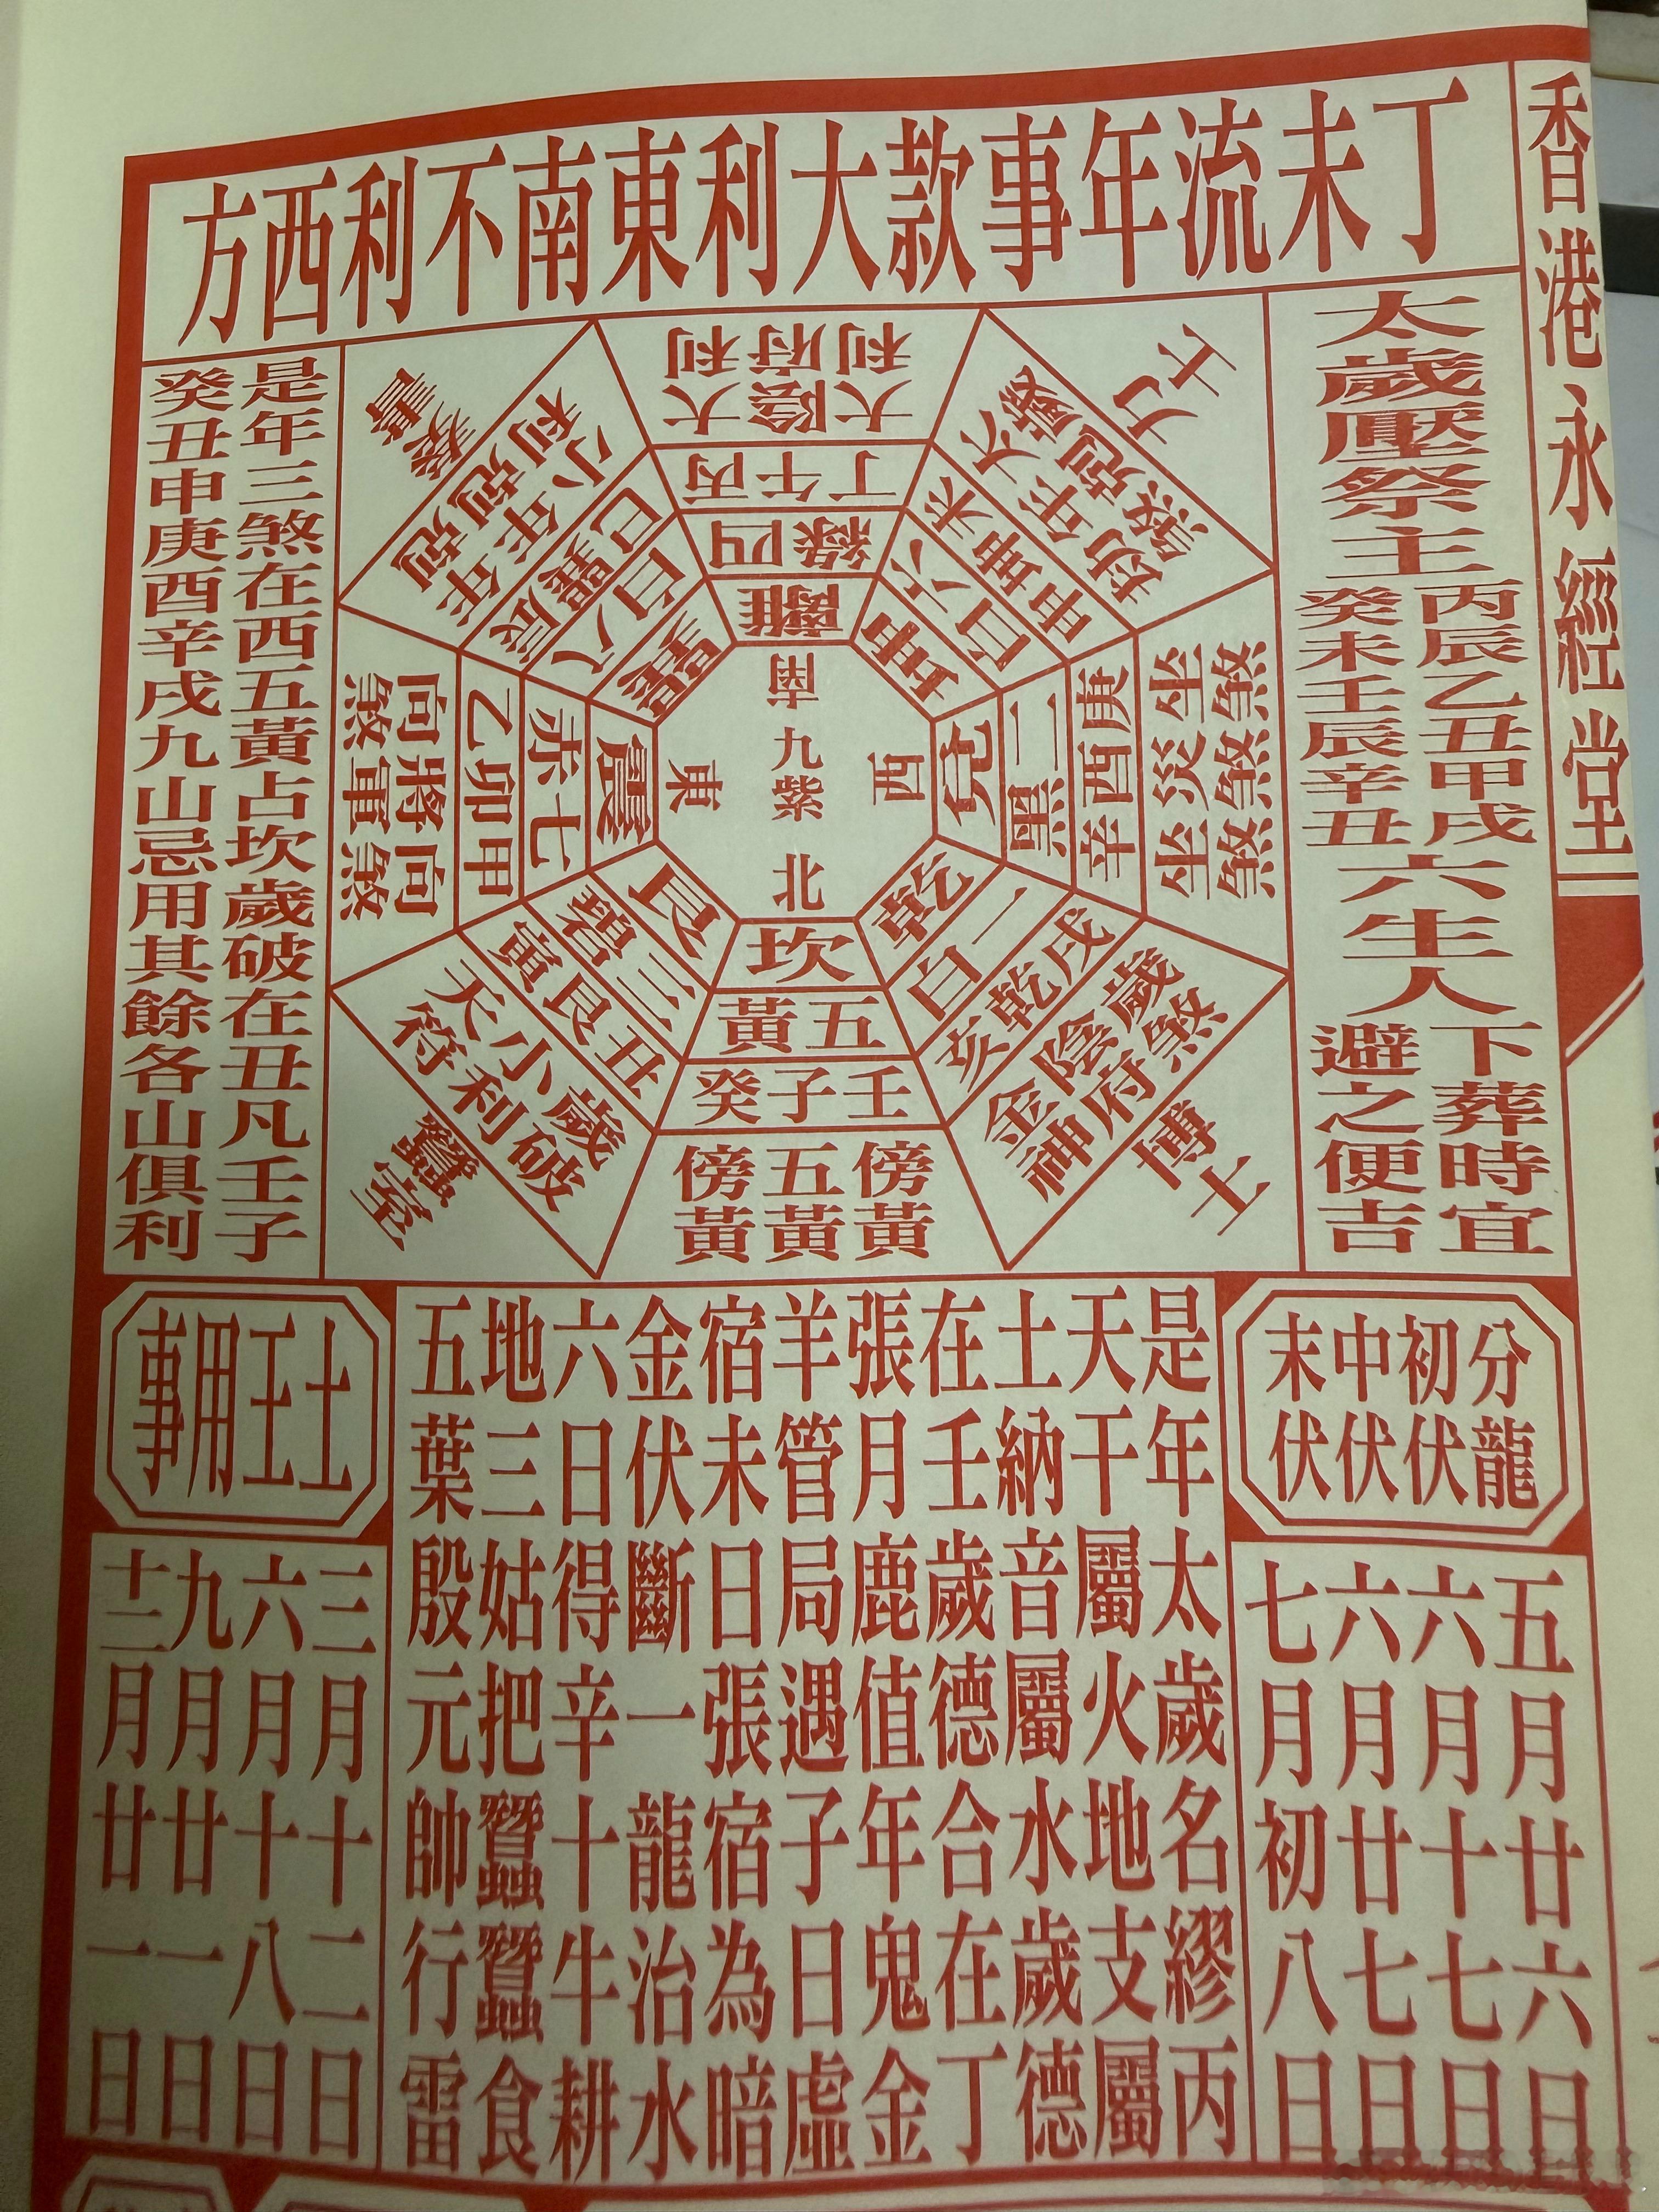 香港永經堂
丁未流年事款大利東南不利西方
太歲壓祭主
丙辰乙丑甲戌
癸未壬辰辛丑
六生人
下葬時宜
避之便吉
奏書
年尅
年尅
小利
辰巽巳
八白
巽
大利
陰府
大利
丙午丁
四綠
離
力士
太歲
年尅
劫煞
未坤申
六白
坤
向煞
將軍
向煞
甲卯乙
七赤
震
南
東
九紫
西
北
坐煞
災煞
坐煞
庚酉辛
二黑
兌
蠶室
歲破
小利
天符
丑艮寅
三碧
艮
坎
五黃
壬子癸
傍黃
五黃
傍黃
乾
一白
戌乾亥
歲煞
陰府
金神
博士
是年三煞在西五黃占坎歲破在丑凡壬子
癸丑申庚酉辛戌九山忌用其餘各山俱利
分龍
初伏
中伏
末伏
五月廿六日
六月十七日
六月廿七日
七月初八日
是年太歲名繆丙
天干屬火地支屬
土納音屬水歲德
在壬歲德合在丁
張月鹿值年鬼金
羊管局遇子日虛
宿未日張宿為暗
金伏斷一龍治水
六日得辛十牛耕
地三姑把蠶蠶食
五葉殷元帥行雷
土王用事
三月十二日
六月十八日
九月廿一日
十二月廿一日